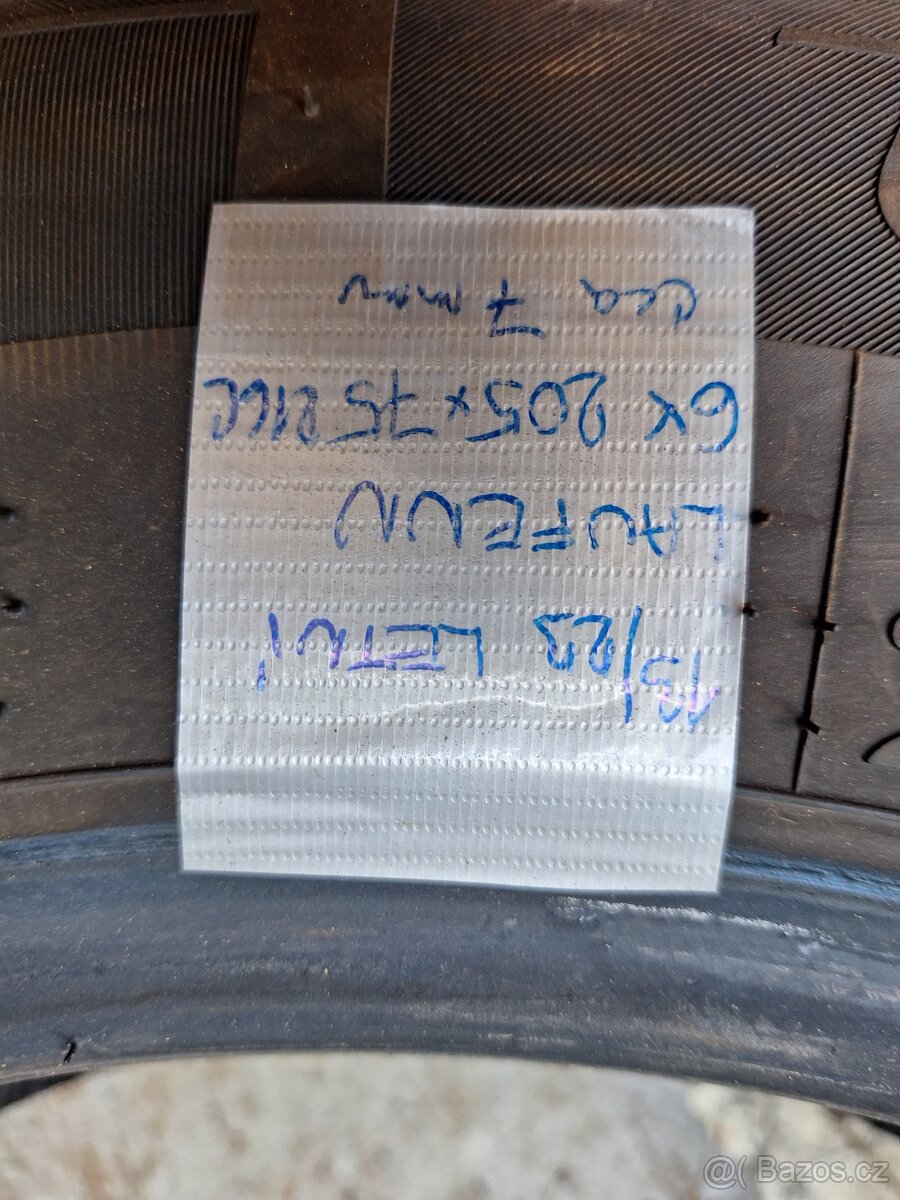 LETNÍ
LAUFENN
6x 205x75R16C
Cca 7 mm
@( Bazos.cz